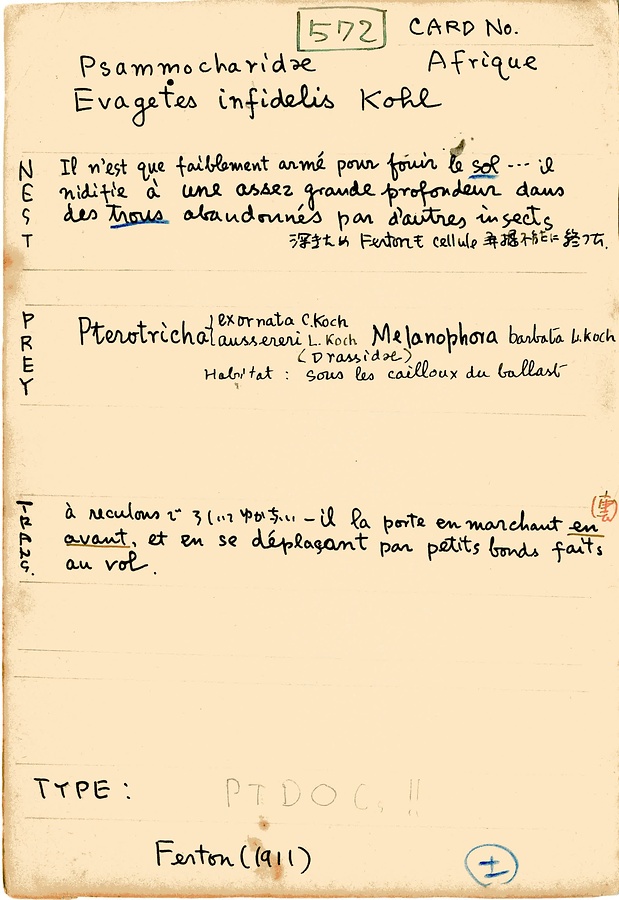 572 CARD No.
Psammocharidæ Afrique
Evagetes infidelis Kohl
NEST
Il n'est que faiblement armé pour fouir le sol --- il
nidifie à une assez grande profondeur dans
des trous abandonnés par d'autres insects
深きため Fertonも cellule 発掘不能に終つた.
PREY
Pterotricha { exornata C.Koch
aussereri L. Koch Melanophora barbata L.Koch
(Drassidæ)
Habitat : sous les cailloux du ballast
TRANS.
à reculons で ... – il la porte en marchant en
avant, et en se déplaçant par petits bonds faits
au vol.
TYPE :
PTDOC, !!
Ferton (1911)
±